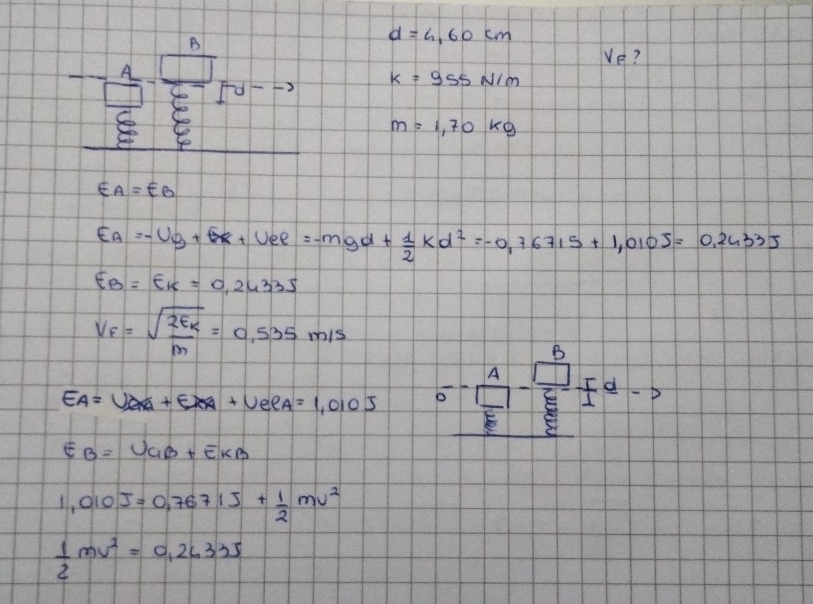 d = 4,60 cm
VF?
k = 955 N/m
m = 1,70 kg
A
B
d
EA = EB
EA = -Ug + EK + Uel = -mgd + 1/2 Kd² = -0,7671J + 1,010J = 0,2433J
EB = EK = 0,2433J
VF = √(2EK/m) = 0,535 m/s
A
B
0
d
EA = UGA + EKA + UelA = 1,010J
EB = UGB + EKB
1,010J = 0,7671J + 1/2 mv²
1/2 mv² = 0,2433J